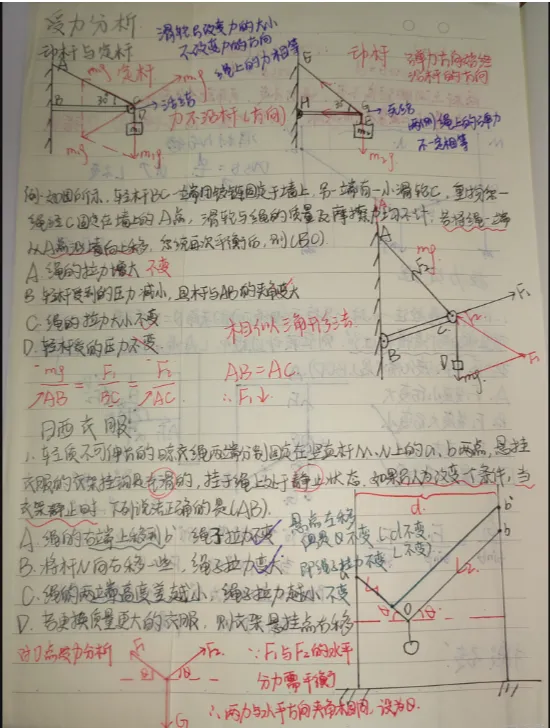 受力分析
动杆与定杆
滑轮只改变力的大小
不改变力的方向
绳上的力相等
动杆 弹力方向始终
沿杆的方向
定杆
A
mg
B
30°
D
活结
力不沿杆(方向)
m₁
mg
m₁g
E
H
30°
G
F
死结
两侧绳上的弹力
不一定相等
m₂
m₂g
例.如图所示,轻杆BC一端用铰链固定于墙上,另一端有一小滑轮C,重物系一
绳经C固定在墙上的A点,滑轮与绳的质量及摩擦力均不计,若将绳一端
从A点沿墙向上移,系统再次平衡后,则(BC)
A.绳的拉力增大 不变
B.轻杆受到的压力减小,且杆与AB的夹角变大
C.绳的拉力大小不变
D.轻杆受的压力不变
相似三角形法
mg/AB = F₁/BC = F₂/AC
AB=AC
∴F₁↓
A
mg
F₂
F₁
C
B
D
mg
F₁
晒衣服
1.轻质不可伸长的晾衣绳两端分别固定在竖直杆M、N上的a、b两点,悬挂
衣服的衣架挂钩是光滑的,挂于绳上处于静止状态,如果只人为改变一个条件,当
衣架静止时,下列说法正确的是(AB)
A.绳的右端上移到b′ 绳子拉力不变
B.将杆N向右移一些,绳子拉力变大
C.绳的两端高度差越小,绳子拉力越小 不变
D.若更换质量更大的衣服,则衣架悬挂点右移
悬点左移
但是θ不变 (d不变
即绳子拉力不变 L不变)
d
b′
b
a
L₁
L₂
θ
O
θ
对O点受力分析
F₁
F₂
θ
θ
G
∵F₁与F₂的水平
分力需平衡
∴两力与水平方向夹角相同,设为θ.